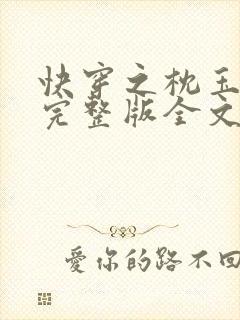 快穿之枕玉
完整版全文
爱你的路不回